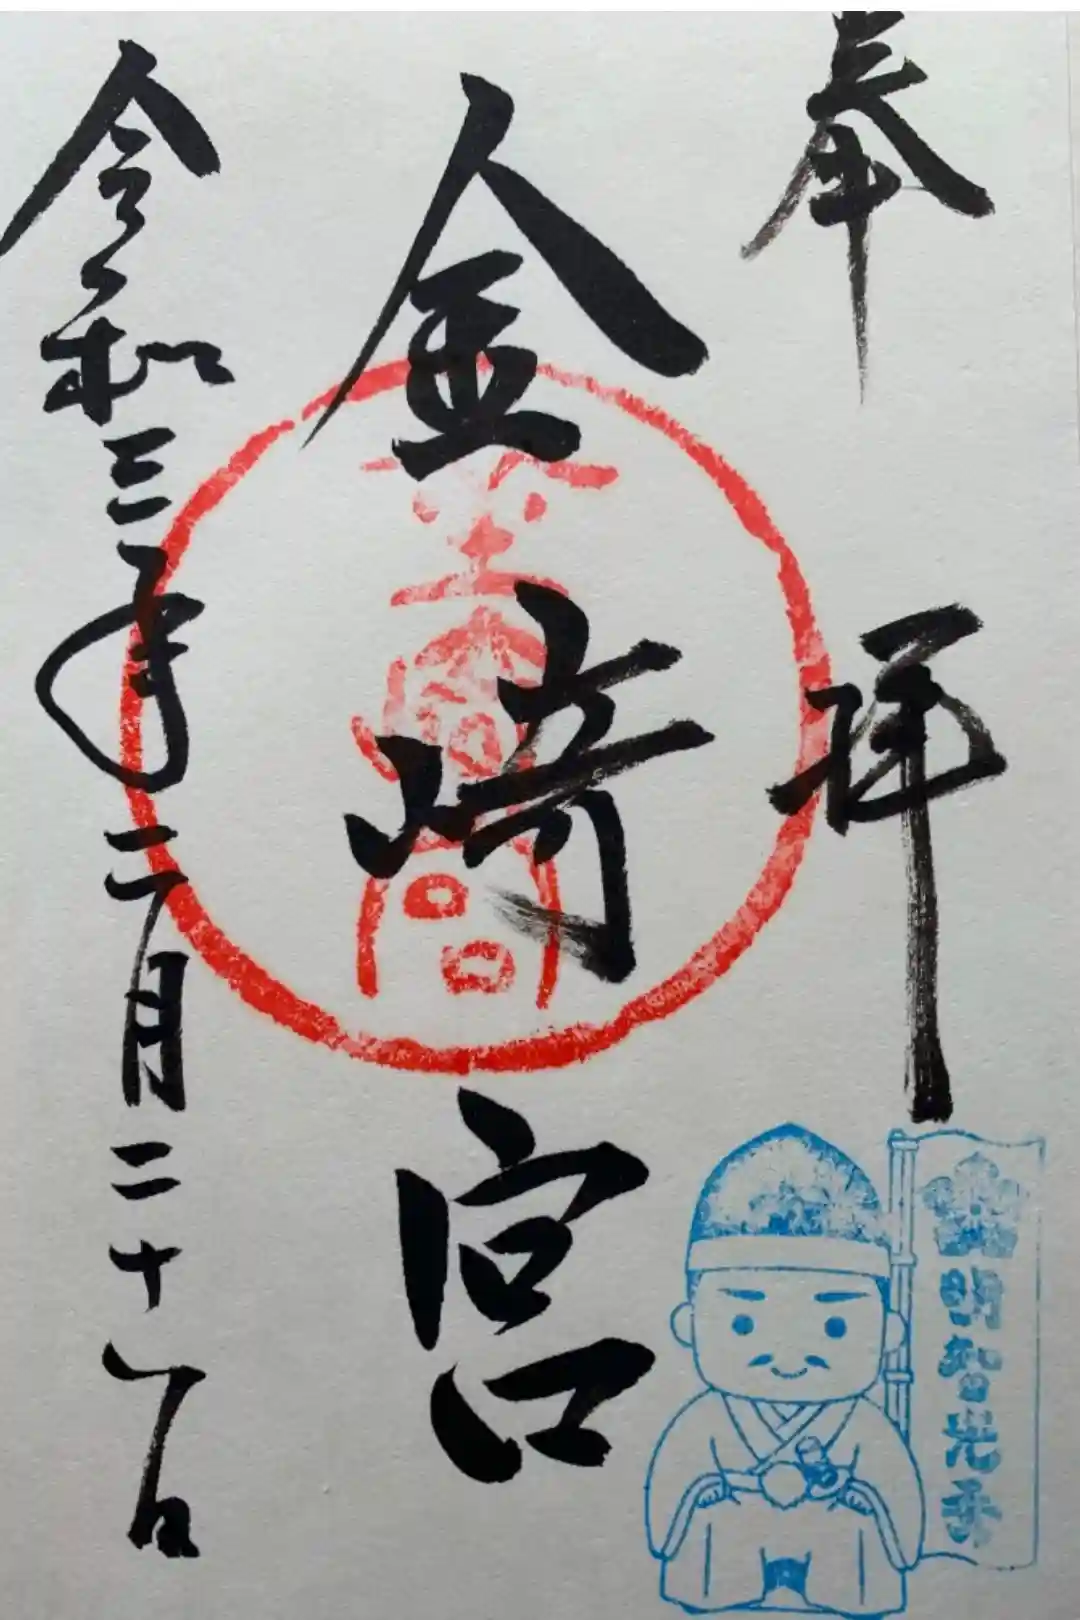 奉拝
金崎宮
令和三年二月二十一日
明智光秀